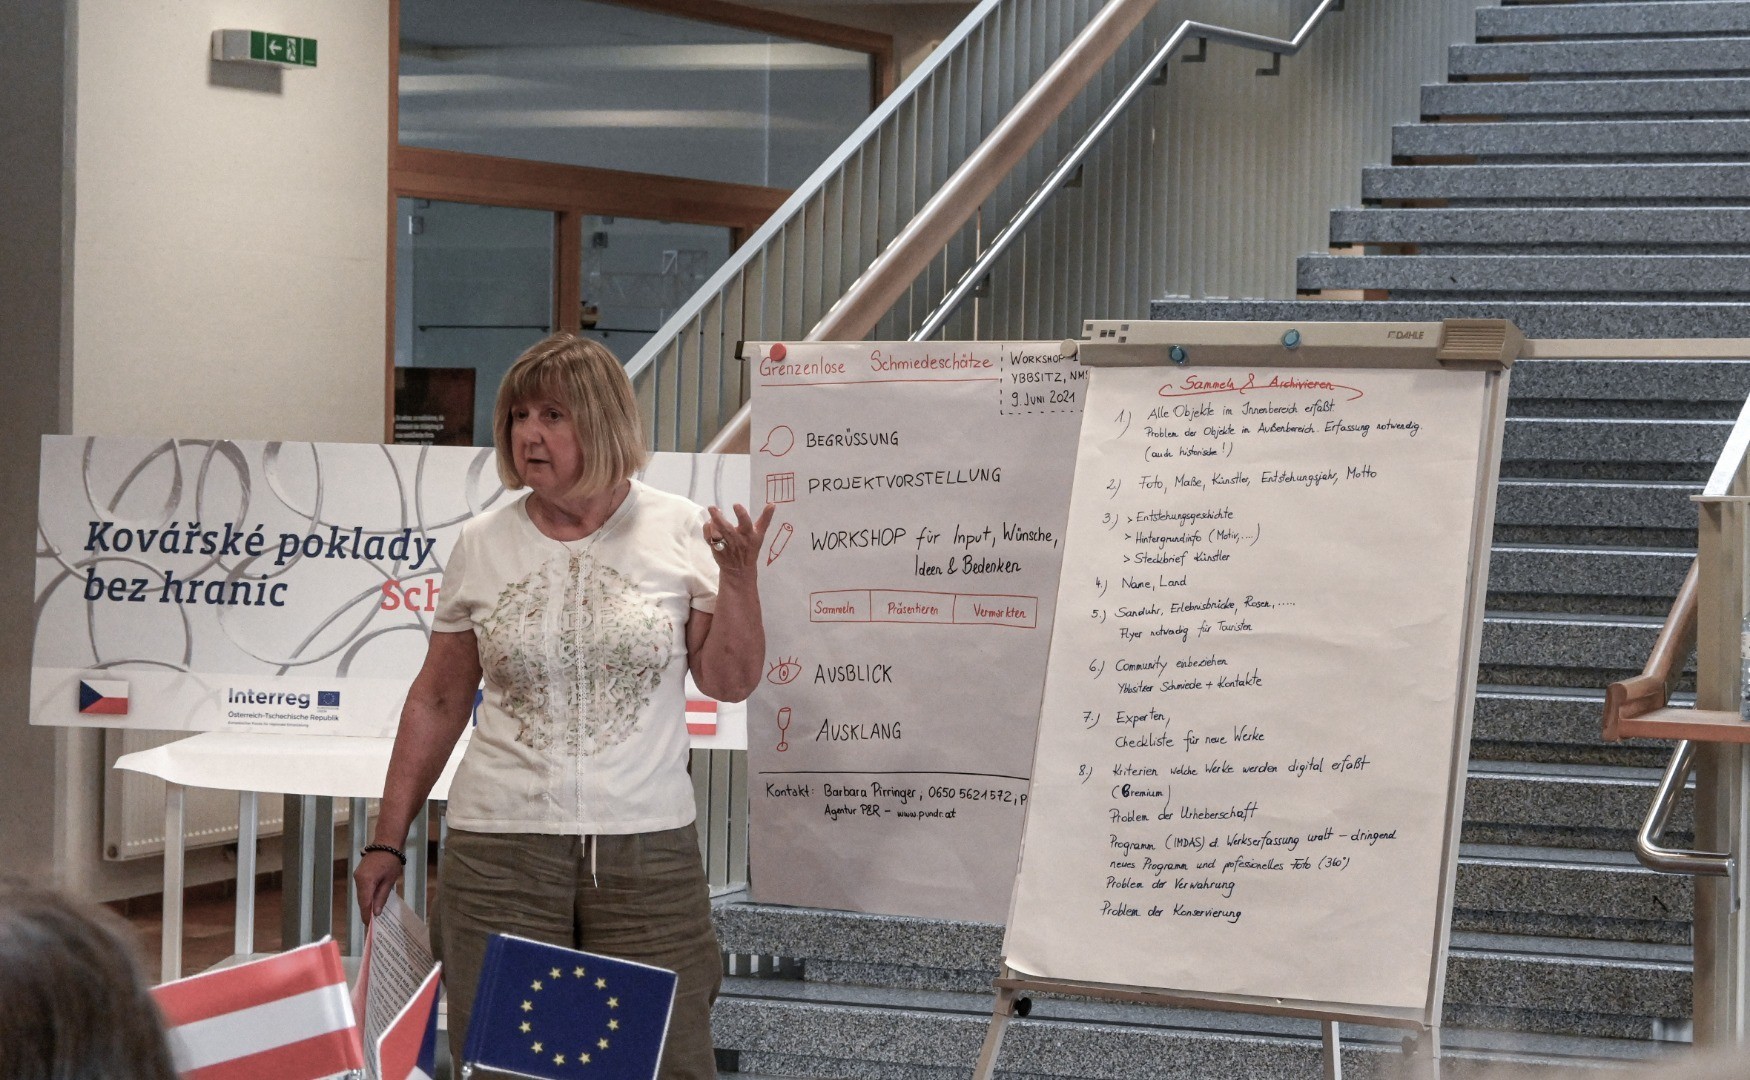 Kovářské poklady
bez hranic
Sch
Interreg
Österreich-Tschechische Republik
Grenzenlose Schmiedeschätze
WORKSHOP 1
YBBSITZ, NMS
9. JUNI 2021
BEGRÜSSUNG
PROJEKTVORSTELLUNG
WORKSHOP für Input, Wünsche,
Ideen & Bedenken
Sammeln Präsentieren Vermarkten
AUSBLICK
AUSKLANG
Kontakt: Barbara Pirringer, 0650 5621572, P
Agentur P&R – www.pundr.at
DAHLE
Sammeln & Archivieren
1) Alle Objekte im Innenbereich erfaßt.
Problem der Objekte im Außenbereich. Erfassung notwendig.
(auch historische!)
2) Foto, Maße, Künstler, Entstehungsjahr, Motto
3) > Entstehungsgeschichte
> Hintergrundinfo (Motiv,....)
> Steckbrief Künstler
4.) Name, Land
5.) Sanduhr, Erlebnisbrücke, Rosen,.....
Flyer notwendig für Touristen
6.) Community einbeziehen
Ybbsitzer Schmiede + Kontakte
7.) Experten,
Checkliste für neue Werke
8.) Kriterien welche Werke werden digital erfaßt
(Gremium)
Problem der Urheberschaft
Programm (IMDAS) d. Werkserfassung uralt – dringend
neues Programm und professionelles Foto (360°)
Problem der Verwahrung
Problem der Konservierung